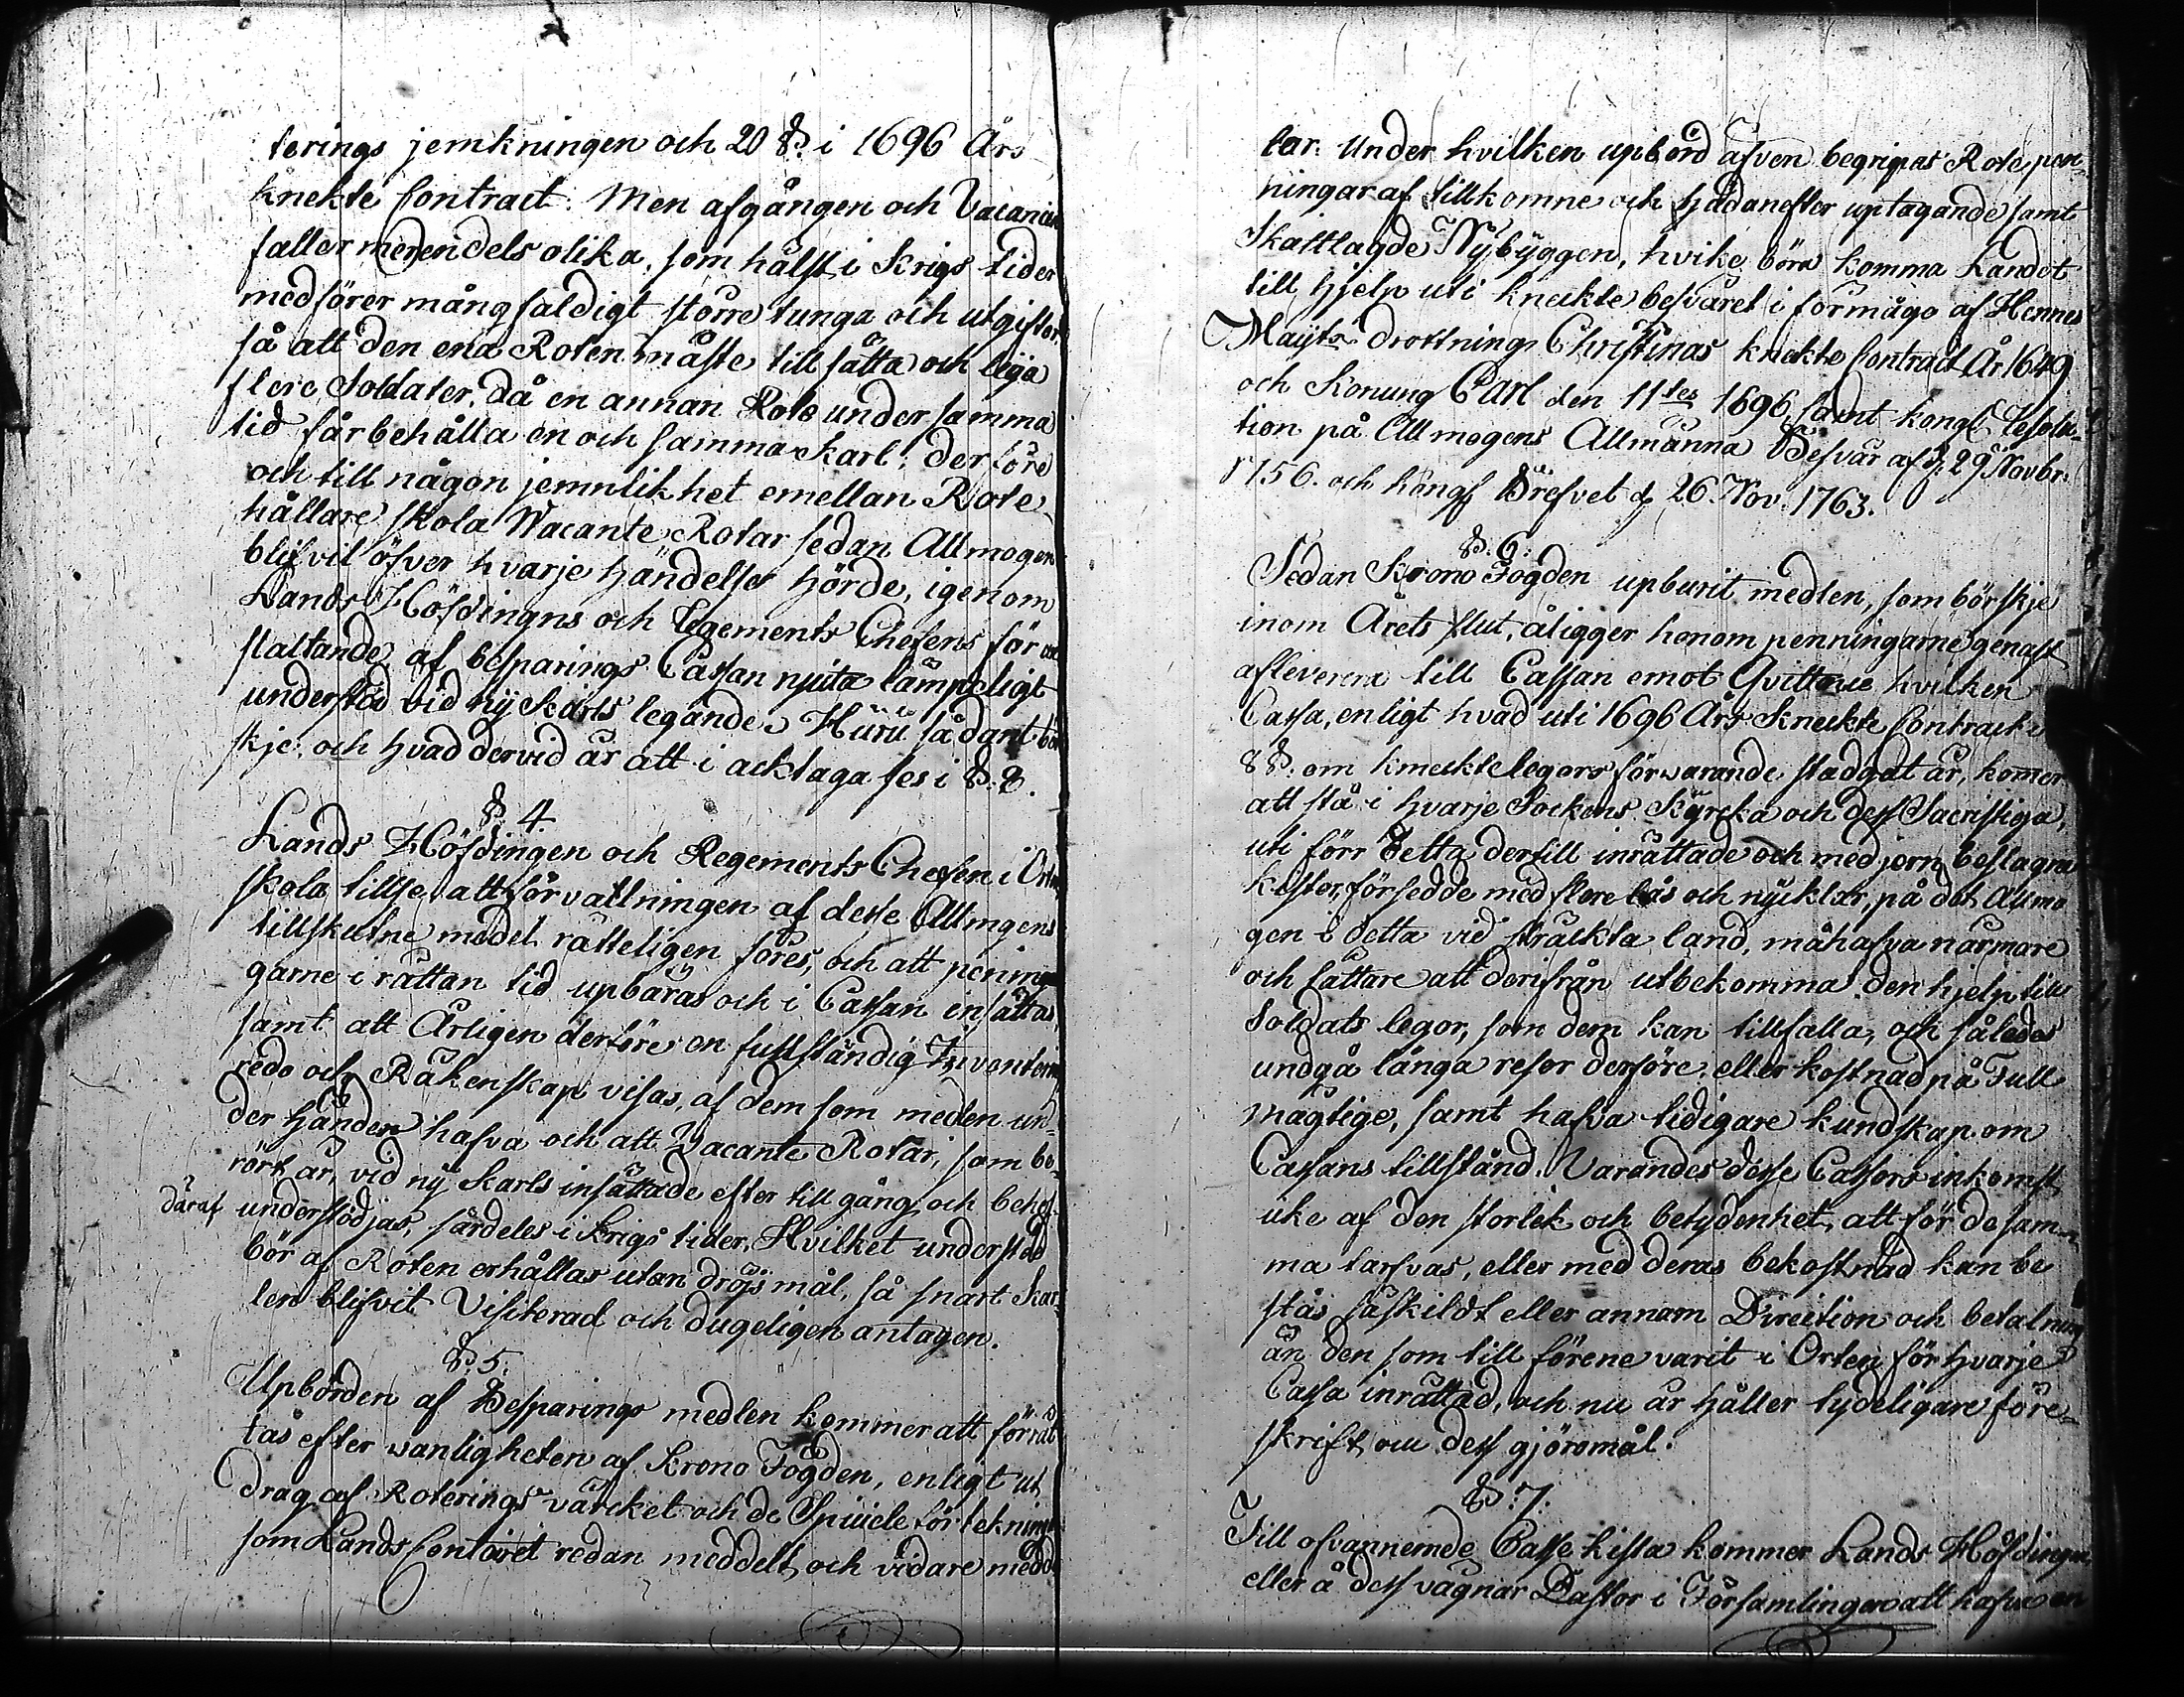 terings jemkningen och 20 §. i 1696 Års
knekte Contract. Men afgången och Vacancien
faller merendels olika, som hälst i Krigs tider
medförer mångfaldigt större tunga och utgifter,
så att den ena Roten måste tillsätta och lega
flere Soldater, då en annan Rote under samma
tid får behålla en och samma Karl; derföre
och till någon jemnlikhet emellan Rote
hållare skola Wacante Rotar sedan Allmogen
blifvit öfver hvarje händelse hörde, igenom
Lands Höfdingns och Regements Chefens för an
staltande af besparings Cassan njuta lämpeligt
understöd vid ny Karls legande. Huru sådant bör
skje och hvad dervid är att i acktaga ses i §. 8.
§ 4.
Lands Höfdingen och Regements Chefen i Orten
skola tillse, att förvaltningen af desse Allmogens
tillskutne medel rätteligen föres, och att pennin
garne i rättan tid upbäras och i Cassan insättas,
samt att Årligen derföre en fullständig Inventerin
redo och Räkenskap visas, af dem som medlen un-
der händer hafva och att Vacante Rotar, som be-
rört är, vid ny Karls insättade efter tillgång och behof
däraf understödjas, särdeles i Krigs tider, Hvilket understöd
bör af Roten erhållas utan dröjsmål, så snart Kar-
len blifvit Visiterad och dugeligen antagen.
§. 5.
Upbörden af Besparings medlen kommer att förrät
tas efter wanligheten af Krono Fogden, enligt ut
drag af Roterings värcket och de Speciele förtekning
som Lands Contoiret redan meddelt och vidare medde
lar. Under hvilken upbörd äfven begripas Rote pen-
ningar af tillkomne och hädanefter uptagande samt
Skattlagde Nybyggen, hvike böra komma Landet
till hjelp uti kneckte besväret i förmågo af Hennes
Maijts Drottning Christinas knekte Contract År 1649
och Konung Carl den 11tes 1696 samt Kongl Resolu-
tion på Allmogens Allmänna Besvär af d. 29 Novbr.
1756. och Kongl Brefvet d 26 Nov. 1763.
§. 6.
Sedan Krono Fogden upburit medlen, som bör skje
inom Årets slut, åligger honom penningarne genast
afleverera till Cassan emot Qvittence hvilken
Cassa, enligt hvad uti 1696 Års Kneckte Contract
8 §. om kneckte legors förwarande stadgat är, komer
att stå i hvarje Sockens Kyrcka och dess Sacristiga,
uti förr detta dertill inrättade och med jern beslagna
kistor, försedde med flere lås och nycklar, på det Allmo
gen i detta vid sträckta land, må hafva närmare
och lättare att derifrån utbekomma den hjelp till
Soldats legor, som dem kan tillfalla, och således
undgå långa resor derföre, eller kostnad på Full
mägtige, samt hafva tidigare kundskap om
Cassans tillstånd. Varandes desse Cassors inkomst
icke af den storlek och betydenhet, att för de sam-
ma tarfvas, eller med deras bekostnad kan be
stås säskildt eller annan Direction och betalning
än den som till förene varit i Orten för hvarje
Cassa inrättad, och nu är håller tydeligare före-
skrift om dess gjöromål.
§. 7.
Till ofvannemde Casse kista kommer Lands Höfdingen
eller å dess vägnar Pastor i Församlingen att hafva en